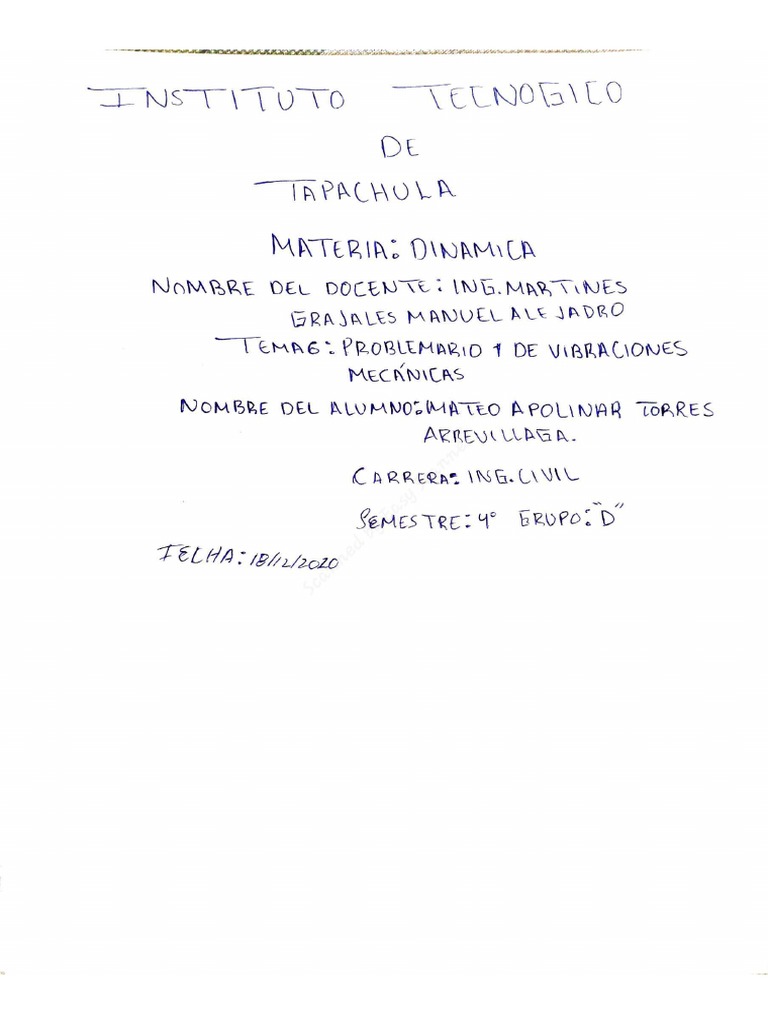 INSTITUTO TECNOGICO
DE
TAPACHULA
MATERIA: DINAMICA
NOMBRE DEL DOCENTE: ING. MARTINES
GRAJALES MANUEL ALEJADRO
TEMA6: PROBLEMARIO 1 DE VIBRACIONES
MECÁNICAS
NOMBRE DEL ALUMNO: MATEO APOLINAR TORRES
ARREVILLAGA.
CARRERA: ING. CIVIL
SEMESTRE: 4° GRUPO: "D"
FECHA: 18/12/2020